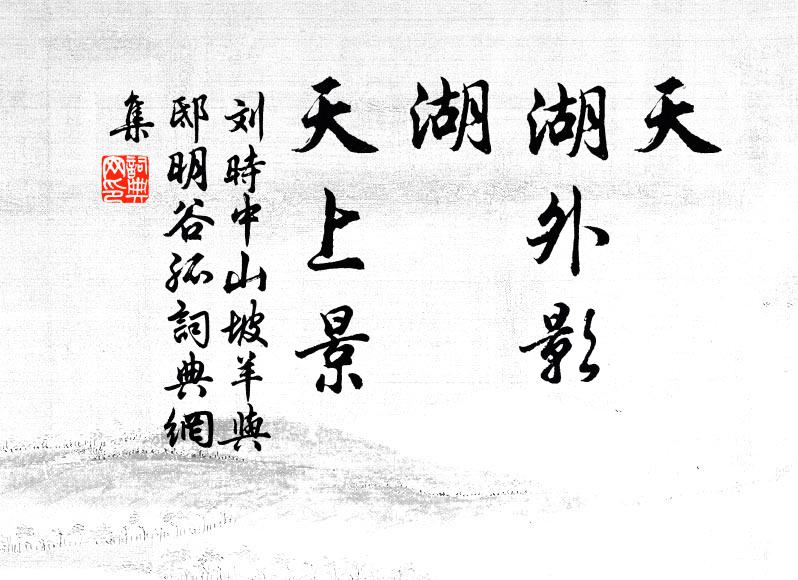 天
湖外影
湖
天上景
刘時中山坡羊與
邸明谷孤詞典網
集
詞典网印